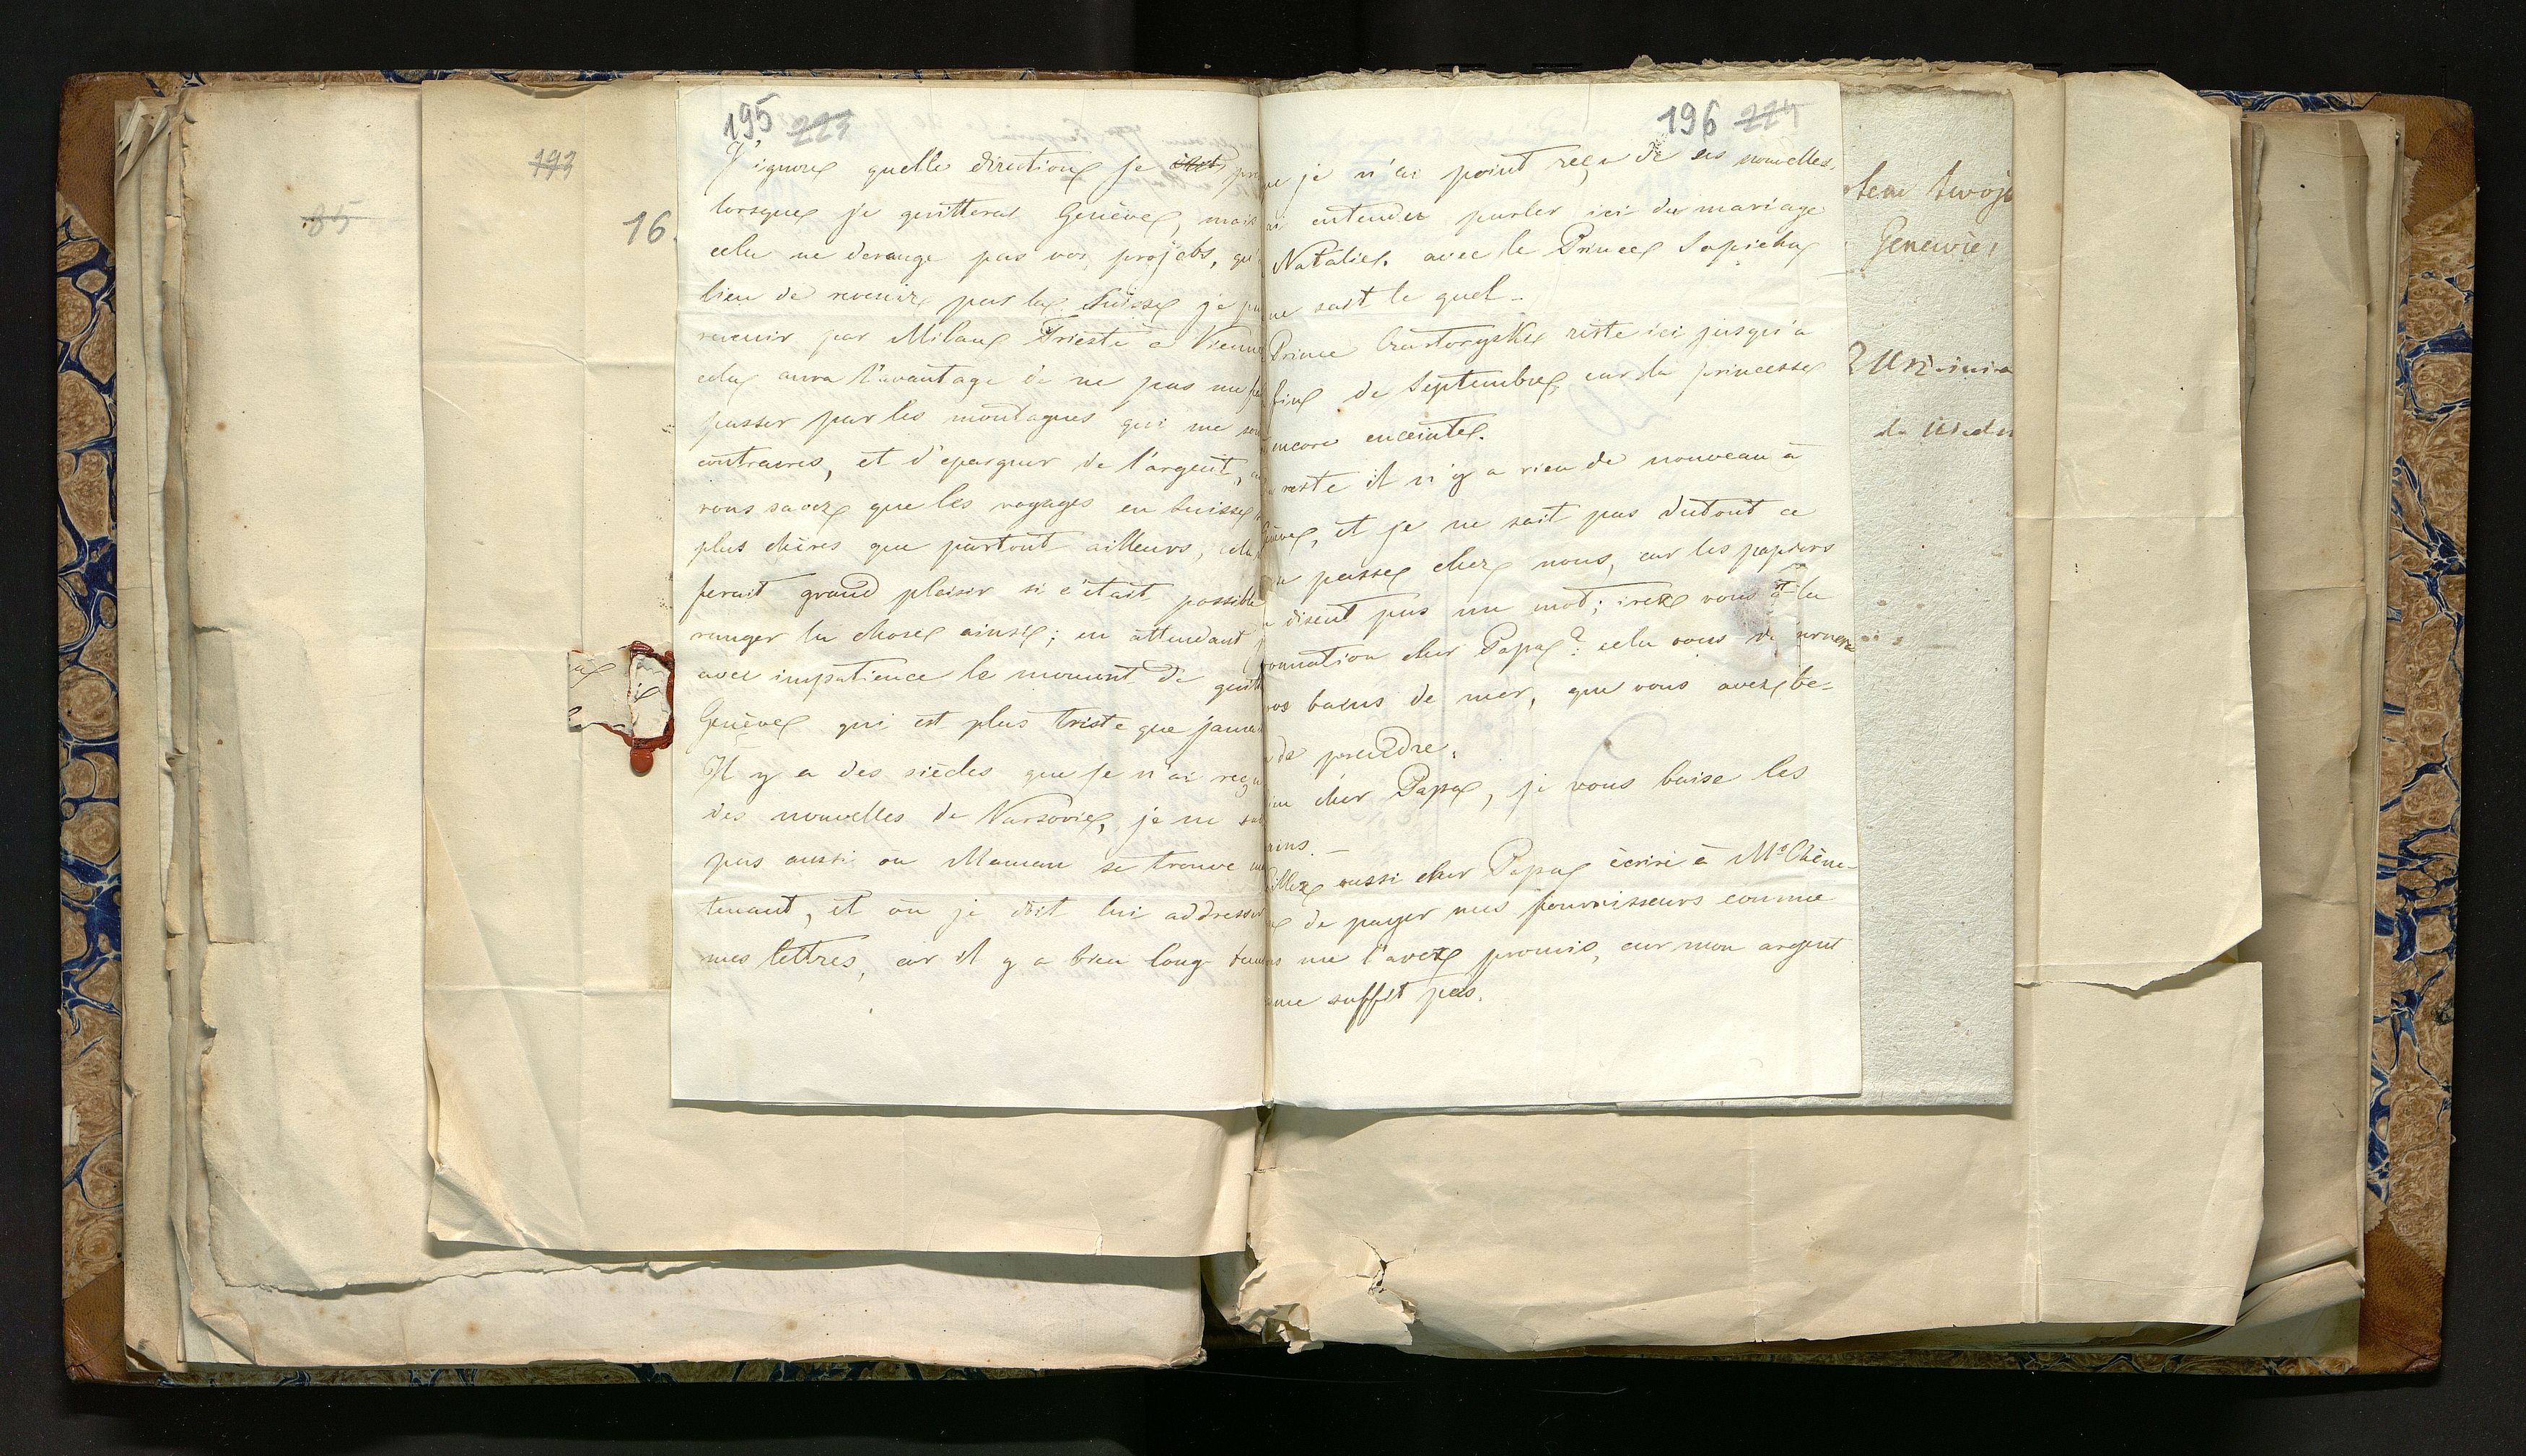 195 223
J'ignore quelle direction je
lorsque je quitterai Genève, mais
cela ne derange pas vos projets, qu'
lieu de revenir par la Suisse je
revenir par Milan Trieste a Vienne
cela aura l'avantage de ne pas me
passer par les montagnes qui me
contraires, et d'eparguer de l'argent,
vous savez que les voyages en Suisse
plus chères que partout ailleurs, cela
ferait grand plaisir si c'était possible
ranger la chose ainsi; en attendant
avec impatience le moment de
Genève qui est plus triste que jamais
Il y a des siècles que je n'ai reçu
des nouvelles de Varsovie, je ne
pas aussi ou Maman se trouve
tenant, et ou je doit lui addresser
mes lettres, car il y a bien long
193
85
16.
196 224
je n'ai point reçu de ses nouvelles.
entendu parler ici du mariage
Natalie. avec le Prince Sapieha
sait le quel -
Prince Czartoryski reste ici jusqu'a
fin de Septembre, car la princesse
encore enceinte.
reste il n'y a rien de nouveau à
et je ne sait pas dutout ce
passe chez nous, car les papiers
disent pas un mot; irez vous à la
onnation cher Papa? cela vous
bains de mer, que vous avez be-
de prendre.
cher Papa, je vous baise les
ains. -
illez aussi cher Papa écrire à Mr Chêne-
de payer mes fournisseurs comme
me l'avez promis, car mon argent
me suffit pas.
twoje
Genewie